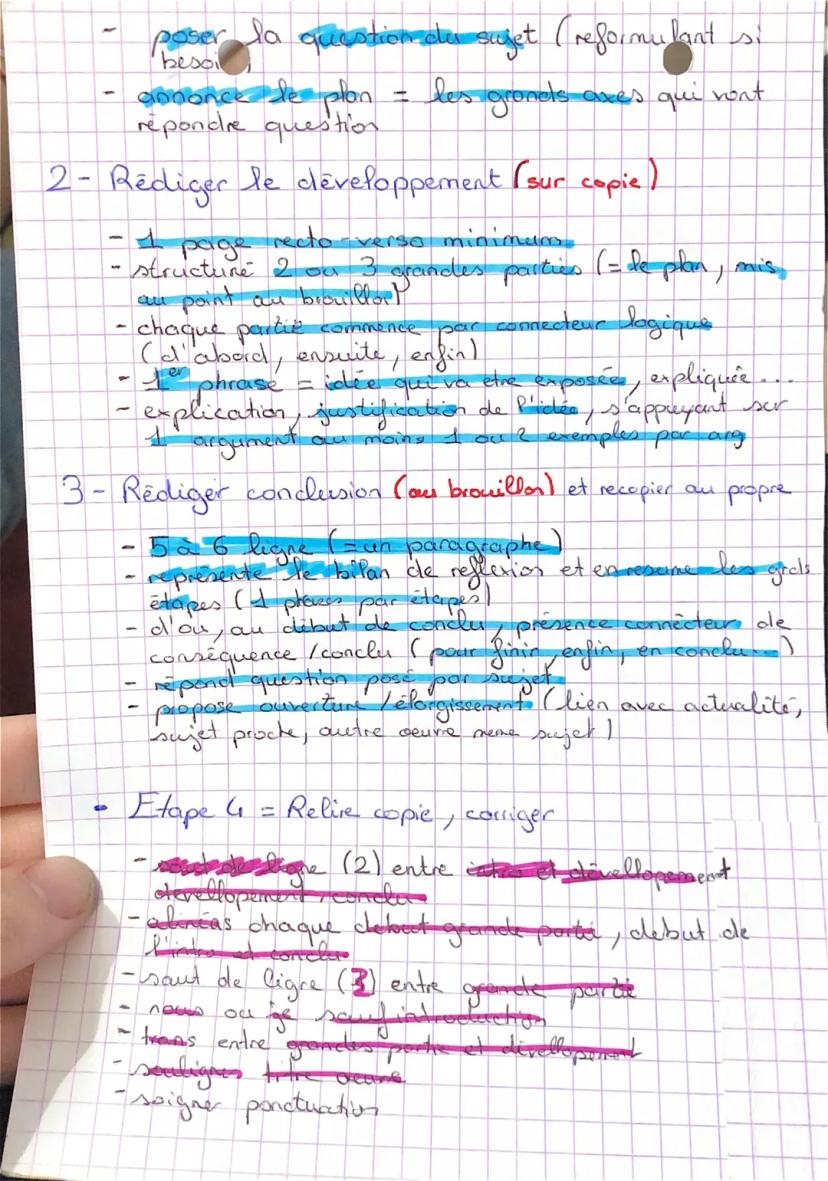 - poser la question du sujet (reformulant si
besoin,
- annonce le plan = les grands axes qui vont
répondre question
2 - Rédiger le développement (sur copie)
- 1 page recto-verso minimum
- structuré 2 ou 3 grandes parties (= le plan, mis
au point au brouillon)
- chaque partie commence par connecteur logique
(d'abord, ensuite, enfin)
- 1er phrase = idée qui va etre exposée, expliquée...
- explication, justification de l'idée, s'appuyant sur
1 argument au moins 1 ou 2 exemples par arg
3 - Rédiger conclusion (au brouillon) et recopier au propre
- 5 à 6 ligne (= un paragraphe)
- représente le bilan de reflexion et en resume les grds
étapes (1 phrases par étapes)
- d'ou, au début de conclu, présence connecteur de
conséquence / conclu (pour finir, enfin, en conclu...)
- répond question posé par sujet
- propose ouverture / élargissement (lien avec actualité,
sujet proche, autre oeuvre meme sujet)
• Etape 4 = Relire copie, corriger
- saut de ligne (2) entre intro et dévellopement
devellopement, conclu
- alinéas chaque debut grande partie, debut de
l'intro et conclu
- saut de ligne (3) entre grande partie
- nous ou je sauf introduction
- trans entre grandes partie et dévellopement
- souligner titre oeuvre
- soigner ponctuation